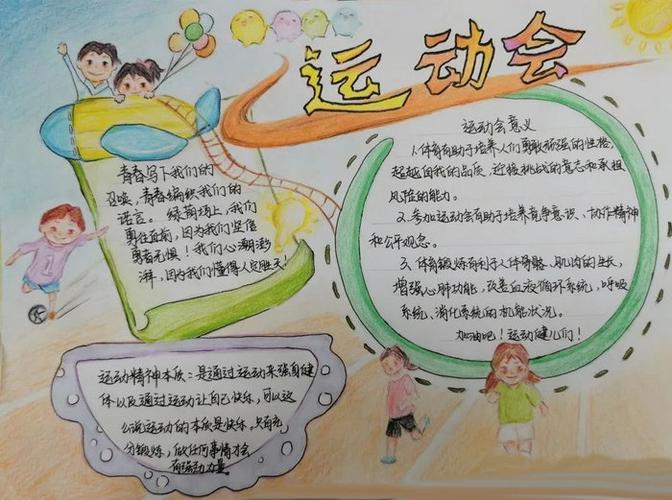 运动会
青春写下我们的
召唤，青春编织我们的
语言。绿茵场上，我们
勇往直前，因为我们坚信
勇者无惧！我们心潮澎
湃，因为我们懂得人定胜天！
运动会意义
1.体育有助于培养人们勇敢顽强的性格，
超越自我的品质，迎接挑战的意志和承担
风险的能力。
2、参加运动会有助于培养竞争意识、协作精神
和公平观念。
3、体育锻炼有利于人体骨骼、肌肉的生长，
增强心肺功能，改善血液循环系统，呼吸
系统、消化系统的机能状况。
加油吧！运动健儿们！
运动精神本质：是通过运动来强自健
体以及通过运动让自己快乐，可以这
么说运动的本质是快乐。只有充
分锻炼，做任何事情才会
有强动力量
1